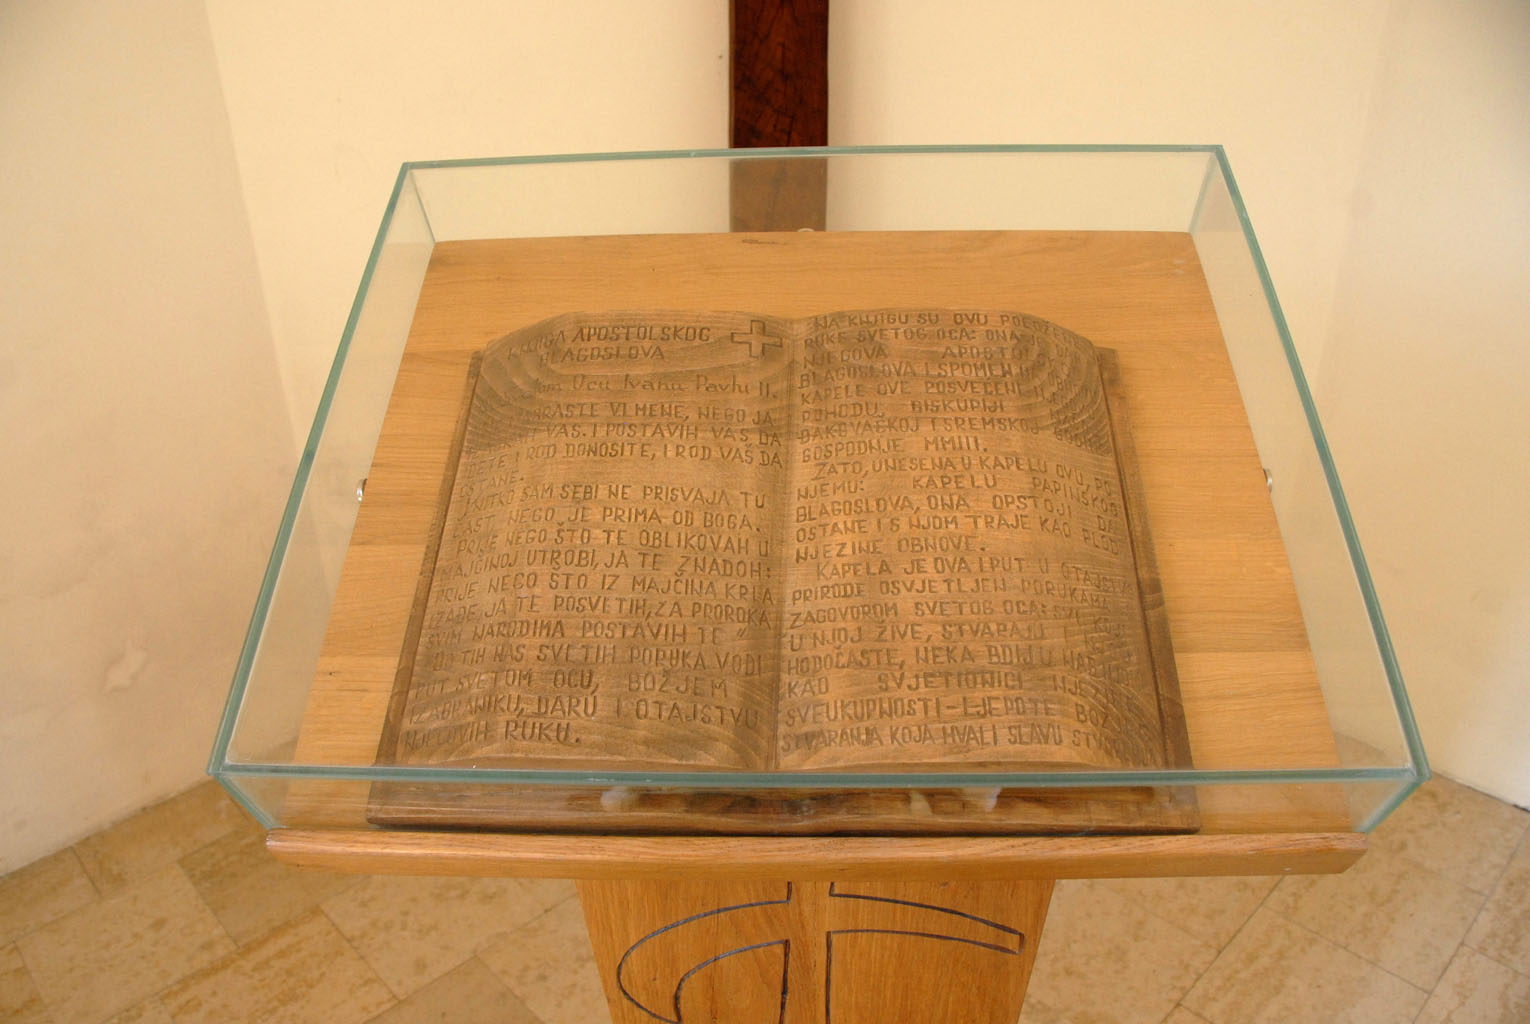 KNJIGA APOSTOLSKOG
BLAGOSLOVA
Ocu Ivanu Pavlu II.
VI MENE, NEGO JA
VAS. I POSTAVIH VAS DA
I ROD DONOSITE, I ROD VAŠ DA
OSTANE.
NITKO SAM SEBI NE PRISVAJA TU
ČAST, NEGO JE PRIMA OD BOGA.
PRIJE NEGO ŠTO TE OBLIKOVAH U
MAJČINOJ UTROBI, JA TE ZNADOH:
PRIJE NEGO ŠTO IZ MAJČINA KRILA
IZAĐE, JA TE POSVETIH, ZA PROROKA
SVIM NARODIMA POSTAVIH TE "
OD TIH NAS SVETIH PORUKA VODI
PUT SVETOM OCU, BOŽJEM
IZABRANIKU, DARU I OTAJSTVU
NJEGOVIH RUKU.
NA KNJIGU SU OVU POLOŽENE
RUKE SVETOG OCA: ONA JE DAR
NJEGOVA
BLAGOSLOVA I SPOMEN
KAPELE OVE POSVEĆENE
POHODU, BISKUPIJI
ĐAKOVAČKOJ I SRIJEMSKOJ
GOSPODNJE MMIII.
ZATO, UNESENA U KAPELU OVU, PO
NJEMU: KAPELU PAPINSKOG
BLAGOSLOVA, ONA OPSTOJI DA
OSTANE I S NJOM TRAJE KAO PLOD
NJEZINE OBNOVE.
KAPELA JE OVA I PUT U OTAJSTVO
PRIRODE OSVJETLJEN PORUKAMA I
ZAGOVOROM SVETOG OCA: SVI KOJI
U NJOJ ŽIVE, STVARAJU I
HODOČASTE, NEKA BDIJU NAD NJOM
KAO SVJETIONICI NJEZINE
SVEUKUPNOSTI - LJEPOTE BOŽJEG
STVARANJA KOJA HVALI SLAVU